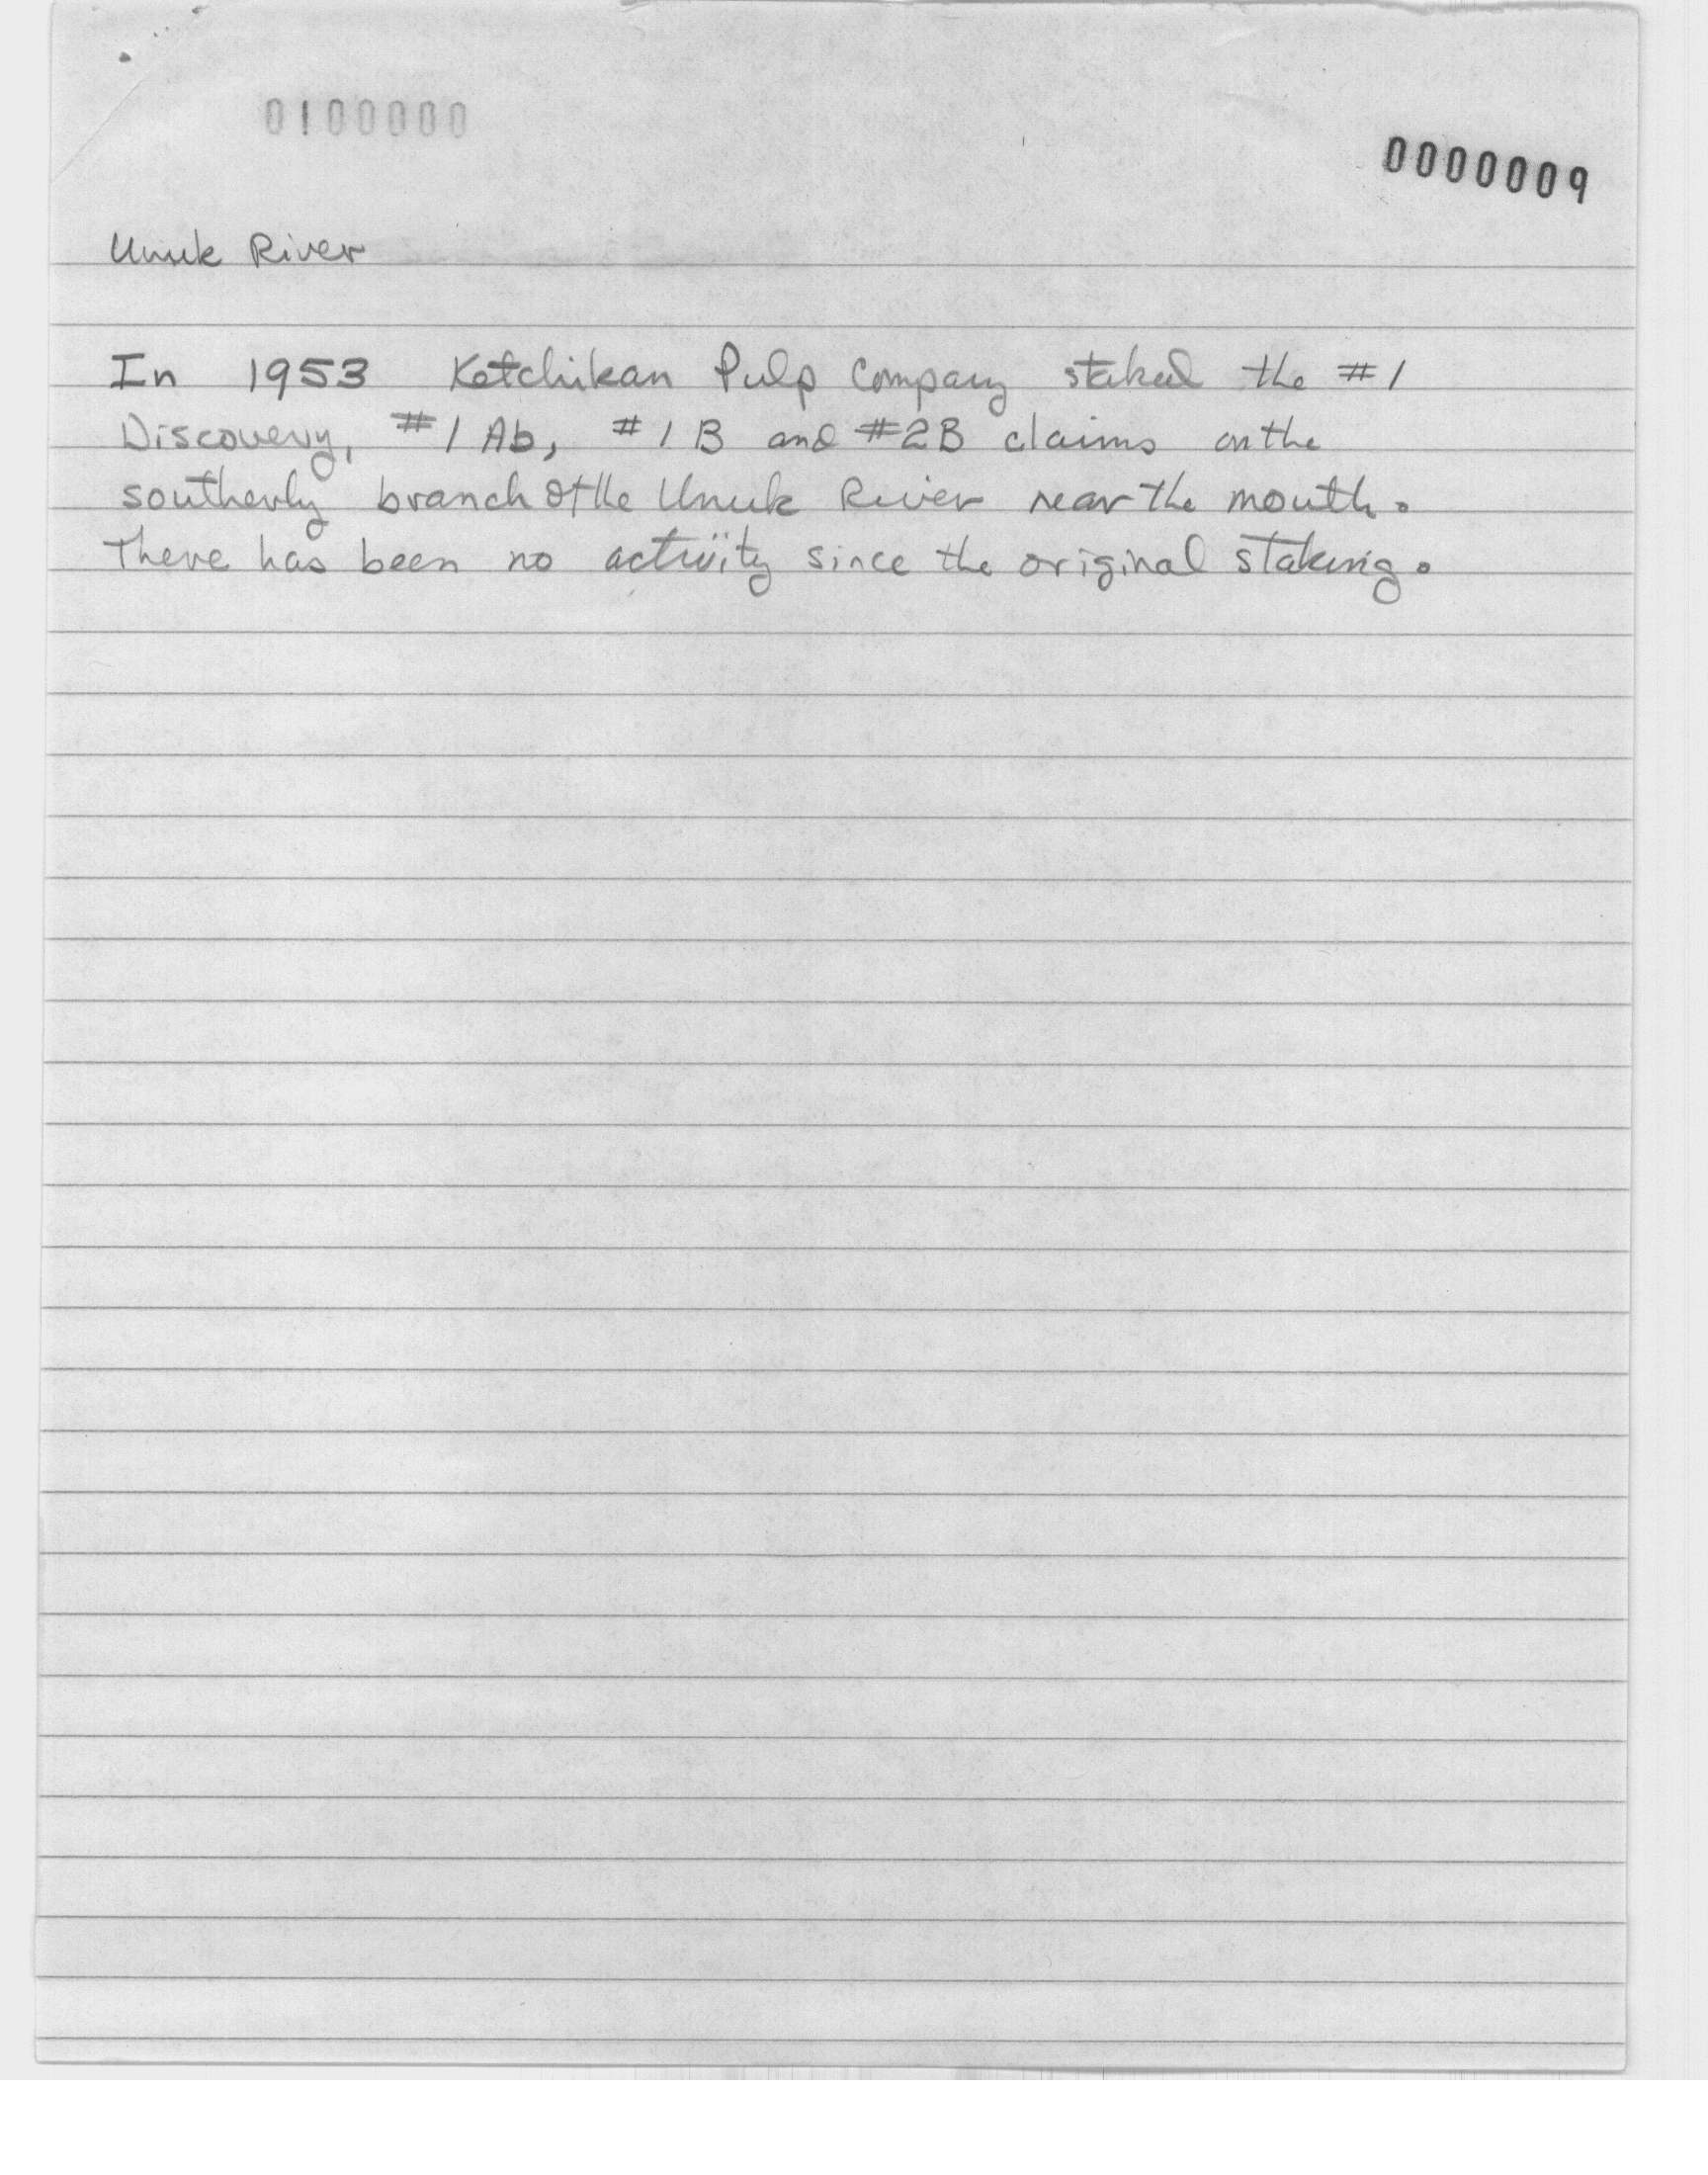 0100000
0000009
Unuk River
In 1953 Ketchikan Pulp Company staked the #1
Discovery, #1 Ab, #1 B and #2B claims on the
southerly branch of the Unuk River near the mouth.
There has been no activity since the original staking.